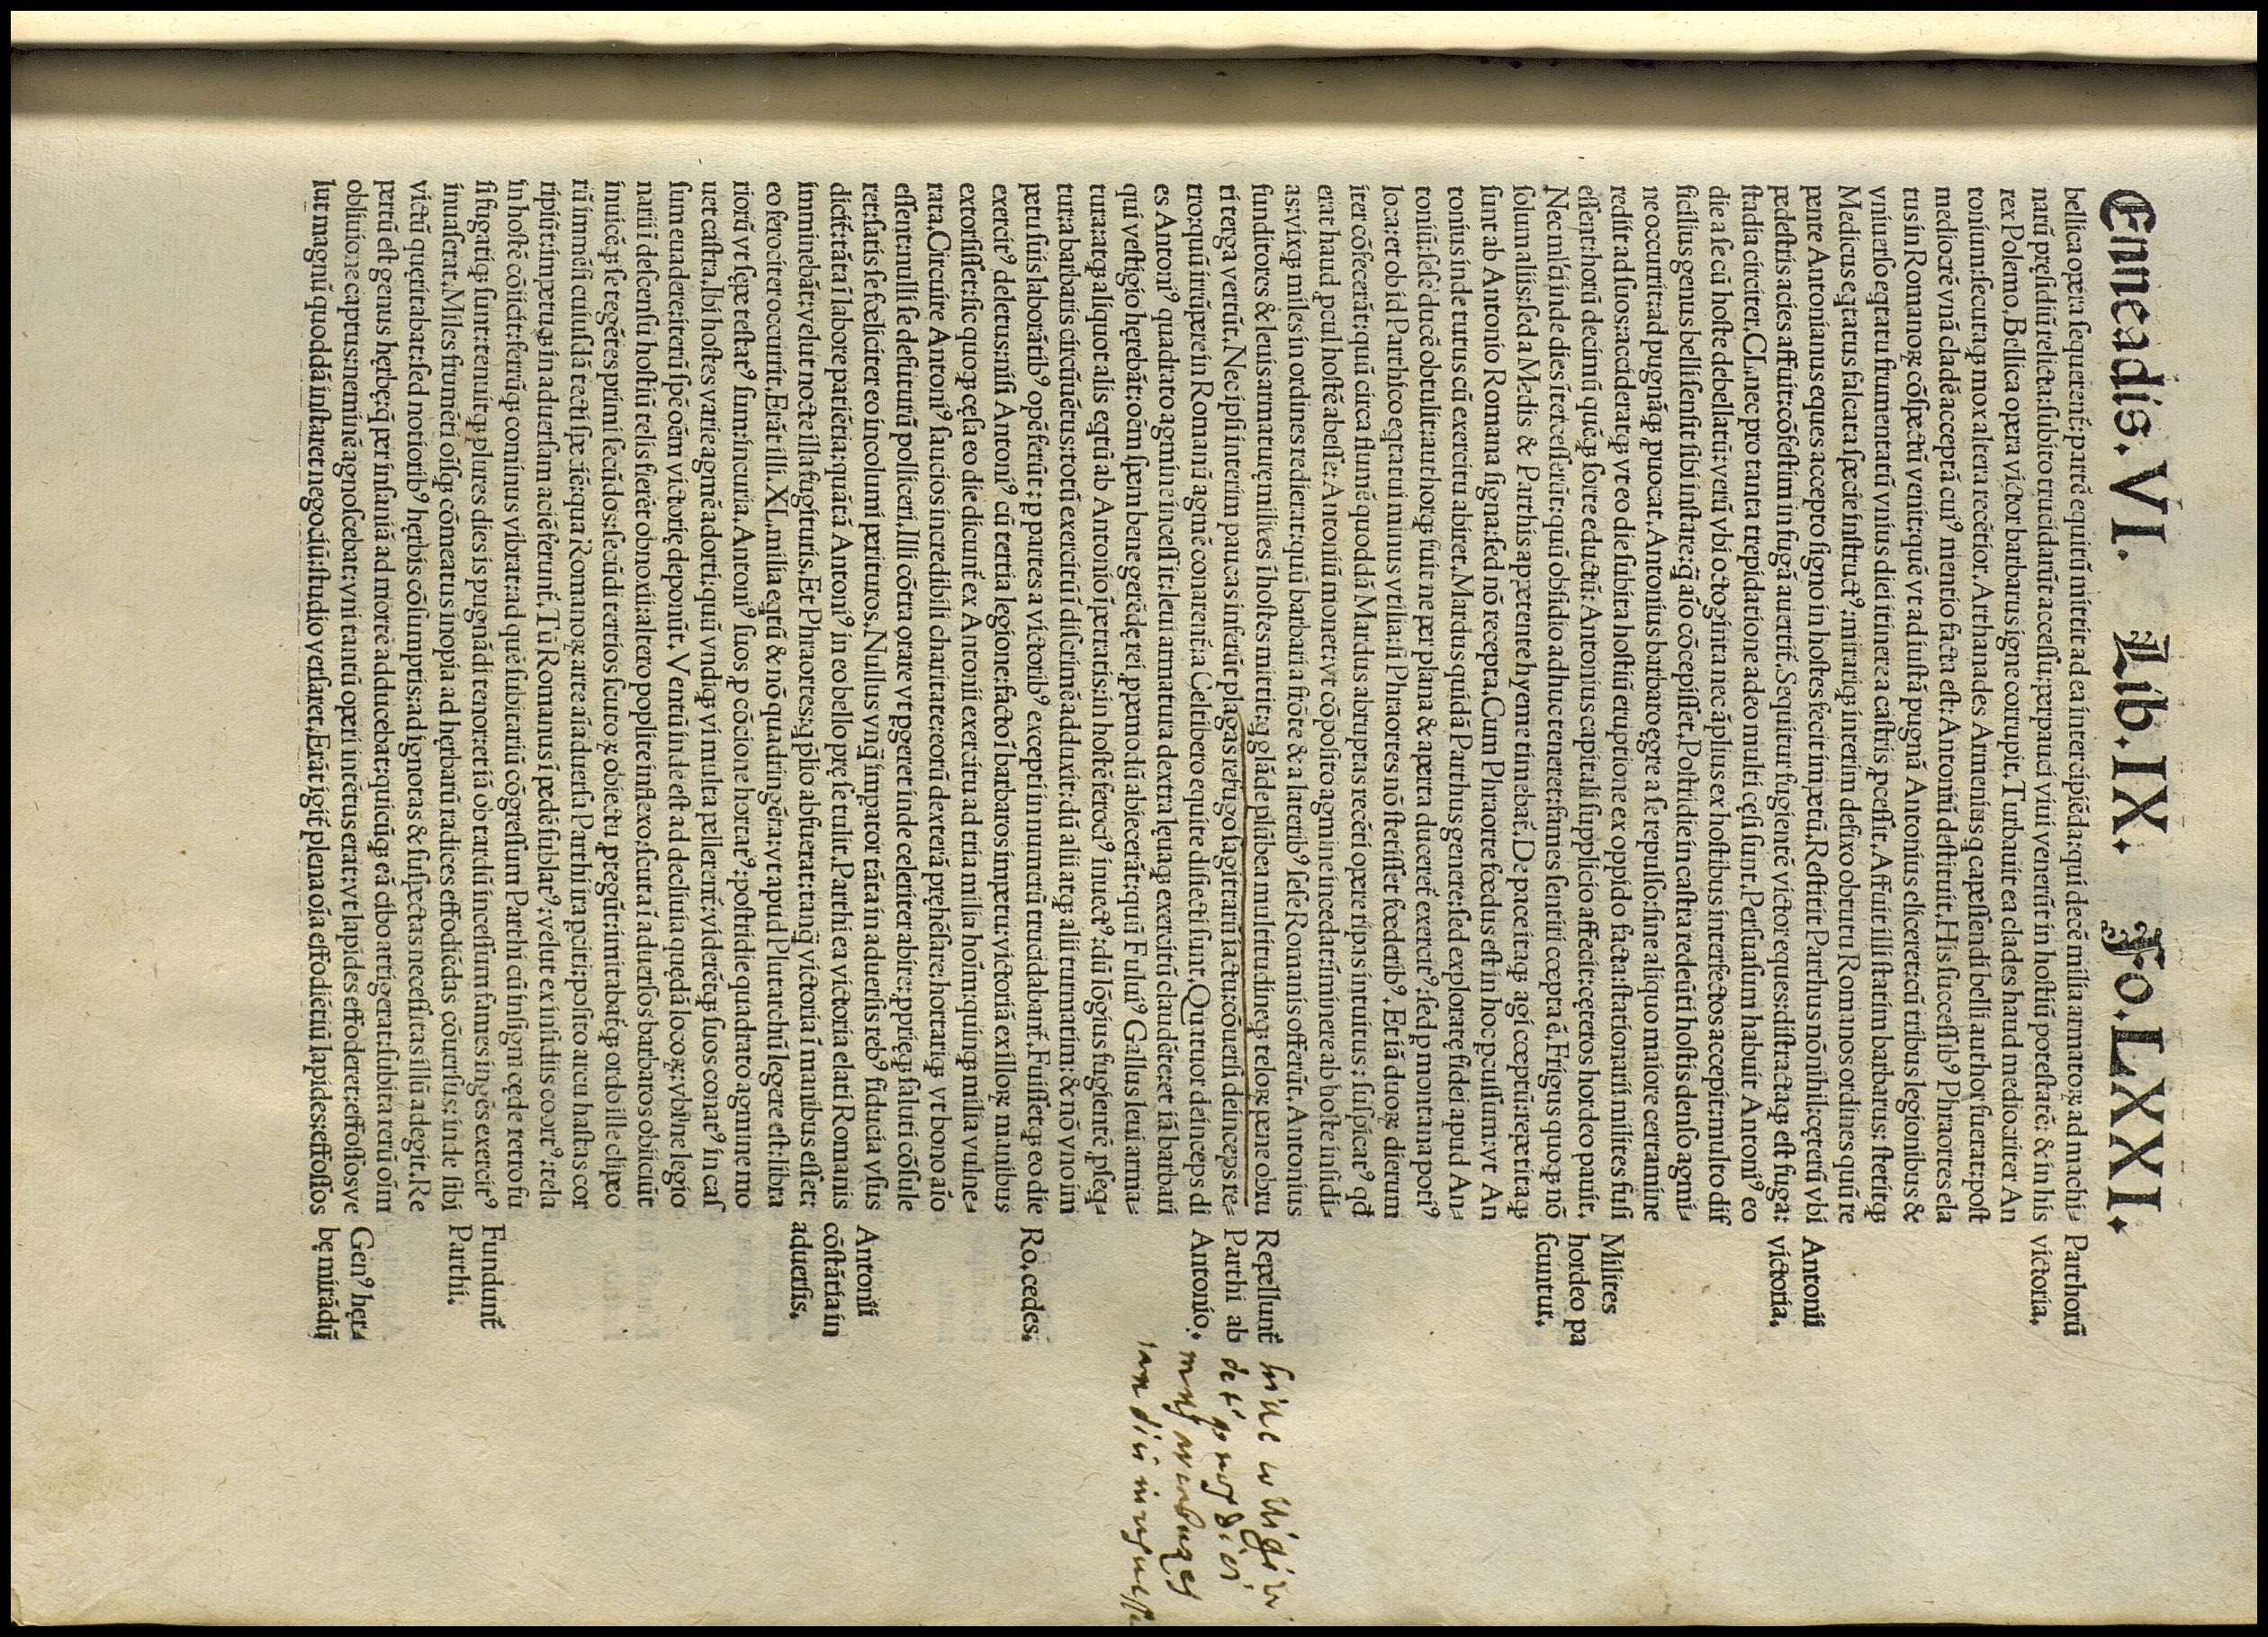 Enneadis. VI. Lib. IX. Fo. LXXI.
bellica opera sequerent᷑: partē equitū mittit ad ea intercipiēda: qui decē milia armatoꝝ ad machi⸗
narū pręsidiū relicta: subito trucidarūt accessu: perpauci viui venerūt in hostiū potestatē: & in his
rex Polemo. Bellica opera victor barbarus igne corrupit. Turbauit ea clades haud mediocriter An
tonium: secutaqꝫ mox altera recētior. Arthanades Armenius q capessendi belli author fuerat: post
mediocrē vnā cladē acceptā cui⁹ mentio facta est: Antoniū destituit. His successib⁹ Phraortes ela
tus in Romanoꝝ cōspectū venit: quē vt ad iustā pugnā Antonius eliceret: cū tribus legionibus &
vniuerso eqtatu frumentatū vnius diei itinere a castris ꝓcessit. Affuit illi statim barbarus: stetitqꝫ
Medicus eqtatus falcata specie instruct⁹: mirariqꝫ interim defixo obtutu Romanos ordines quū re
pente Antonianus eques accepto signo in hostes fecit impetū. Restitit Parthus nōnihil: cęterū vbi
pedestris acies affuit: cōfestim in fugā auertit᷑. Sequitur fugientē victor eques: distractaqꝫ est fuga:
stadia circiter. CL. nec pro tanta trepidatione adeo multi cęsi sunt. Persuasum habuit Antoni⁹ eo
die a se cū hoste debellatū: verū vbi octoginta nec āplius ex hostibus interfectos accepit: multo dif
ficilius genus belli sensit sibi instare: q̄ aīo cōcepisset. Postridie in castra redeūti hostis denso agmi⸗
ne occurrit: ad pugnāqꝫ ꝓuocat. Antonius barbaro ęgre a se repulso: sine aliquo maiore certamine
redijt ad suos: accideratqꝫ vt eo die subita hostiū eruptione ex oppido facta: stationarij milites fusi
essent: horū decimū quēqꝫ sorte eductū: Antonius capitali supplicio affecit: cęteros hordeo pauit.
Nec ml'ti inde dies ītercesserūt: quū obsidio adhuc teneret: fames sentiri cœpta ē. Frigus quoqꝫ nō
solum aliis: sed a Medis & Parthis apetente hyeme timebat᷑. De pace itaqꝫ agi cœptū: repetitaqꝫ
sunt ab Antonio Romana signa: sed nō recepta. Cum Phraorte fœdus est in hoc ꝑcussum: vt An
tonius inde tutus cū exercitu abiret. Mardus quidā Parthus genere: sed exploratę fidei apud An⸗
toniū: sese ducē obtulit: authorqꝫ fuit ne per plana & aperta duceret᷑ exercit⁹: sed ꝑ montana poti⁹
loca: et ob id Parthico eqtatui minus vtilia: si Phraortes nō stetisset fœderib⁹. Et iā duoꝝ dierum
iter cōfecerāt: quū circa flumē quoddā Mardus abruptas recēti opere ripas intuitus: suspicat⁹ qd̄
erat haud ꝓcul hostē abesse: Antoniū monet: vt cōposito agmine incedat: īminere ab hoste insidi⸗
as: vixqꝫ miles in ordines redierat: quū barbari a frōte & a laterib⁹ sese Romanis offerūt. Antonius
funditores & leuis armaturę milites ī hostes mittit: q glāde plūbea multitudineqꝫ teloꝝ pene obru
ti terga vertūt. Nec ipsi interim paucas inferūt plagas refugo sagittarū iactu: cōuersi deinceps re⸗
tro: quū irrūpere in Romanū agmē conarent᷑: a Celtibero equite disiecti sunt. Quatuor deinceps di
es Antoni⁹ quadrato agmine incessit: leui armatura dextra lęuaqꝫ exercitū claudēte: et iā barbari
qui vestigio hęrebāt: oēm spem bene gerēdę rei ꝓpemodū abiecerāt: quū Fului⁹ Gallus leui arma⸗
tura: atqꝫ aliquot alis eqtū ab Antonio īpetratis: in hostē feroci⁹ inuect⁹: dū lōgius fugientē ꝑseq⸗
tur: a barbaris circūuētus: totū exercitū ī discrimē adduxit: dū alii atqꝫ alii turmatim: & nō vno im
petu suis laborātib⁹ opē ferūt: ꝑ partes a victorib⁹ excepti innumeri trucidabant᷑. Fuissetqꝫ eo die
exercit⁹ deletus: nisi Antoni⁹ cū tertia legione: facto ī barbaros impetu: victoriā ex illoꝝ manibus
extorsisset: sic quoqꝫ cęsa eo die dicunt᷑ ex Antonii exercitu ad tria milia hoīm: quinqꝫ milia vulne⸗
rata. Circuire Antoni⁹ saucios incredibili charitate: eorū dexterā pręhēsare: hortariqꝫ vt bono aīo
essent: nulli se defuturū polliceri. Illi cōtra orare vt ꝑgeret inde celeriter abire: ꝓprięqꝫ saluti cōsule
ret: satis se fœliciter eo incolumi perituros. Nullus vnq̄ imperator tāta in aduersis reb⁹ fiducia vsus
dicit᷑: tāta ī labore patiētia: quātā Antoni⁹ in eo bello prę se tulit. Parthi ea victoria elati Romanis
imminebāt: velut nocte illa fugituris. Et Phraortes: q p̄lio abfuerat: tanq̄ victoria ī manibus esset:
eo ferociter occurrit. Erāt illi. XL. milia eqtū & nō quadringēta: vt apud Plutarchū legere est: libra
riorū vt sępe testat⁹ sum: incuria. Antoni⁹ suos ꝓ cōcione hortat⁹: postridie quadrato agmine mo
uet castra. Ibi hostes varie agmē adorti: quū vndiqꝫ vi multa pellerent᷑: viderētqꝫ suos conat⁹ in cas
sum euadere: iterū spē oēm victorię deponūt. Ventū inde est ad decliuia quędā locoꝝ: vbi īne legio
narii ī descensu hostiū telis fierēt obnoxii: altero poplite inflexo: scuta ī aduersos barbaros obiiciūt
inuicēqꝫ se tegētes primi secūdos: secūdi tertios scutoꝝ obiectu ꝓtegūt: imitabat᷑qꝫ ordo ille clipeo
rū īmēsi cuiusdā tecti speciē: qua Romanoꝝ arte aīaduersa Parthi ita ꝓciti: posito arcu hastas cor
ripiūt: impetuqꝫ in aduersam aciē ferunt᷑. Tū Romanus ī pedē sublat⁹: velut ex insidiis coort⁹: tela
in hostē cōiicit: ferrūqꝫ cominus vibrat: ad quē subitariū cōgressum Parthi cū insigni cęde retro fu
si fugatiqꝫ sunt: tenuitqꝫ plures dies is pugnādi tenor: et iā ob tardū incessum fames ingēs exercit⁹
inuaserat. Miles frumēti oīsqꝫ cōmeatus inopia ad herbarū radices effodiēdas cōuersus: inde sibi
victū quęritabat: sed notiorib⁹ hęrbis cōsumptis: ad ignotas & suspectas necessitas illū adegit. Re
pertū est genus hęrbę: q̄ per insaniā ad mortē adducebat: quicūqꝫ eā cibo attigerat: subita rerū oīm
obliuione captus: neminē agnoscebat: vni tantū operi intētus erat: vt lapides effoderet: effossosve
lut magnū quoddā instaret negociū: studio versaret. Erāt igit᷑ plena oīa effodiētiū lapides: effossos
Parthorū
victoria.
Antonii
victoria.
Milites
hordeo pa
scuntur.
Repellunt᷑
Parthi ab
Antonio.
Ro. cedes.
Antonii
cōstātia in
aduersis.
Fundunt᷑
Parthi.
Gen⁹ hęr⸗
bę mirādū